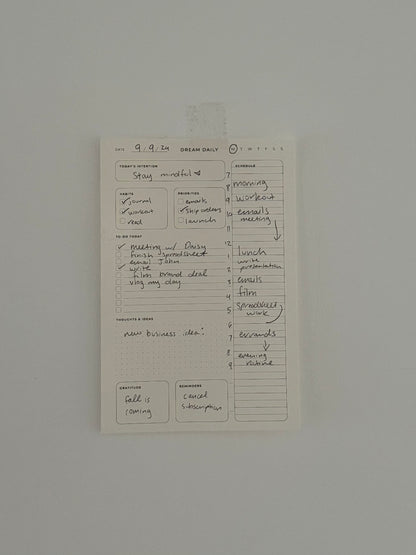 DATE 9/9/24 DREAM DAILY M T W T F S S
TODAY'S INTENTION
Stay mindful
HABITS
journal
workout
read
PRIORITIES
emails
Ship orders
launch
TO-DO TODAY
meeting w/ Daisy
finish spreadsheet
email John
write
film brand deal
vlog my day
THOUGHTS & IDEAS
new business idea:
GRATITUDE
fall is
coming
REMINDERS
cancel
subscription
SCHEDULE
7
8 morning
9 workout
10 emails
11 meeting
12
1 lunch
2 write
presentation
3 emails
4 film
5 spreadsheet
work
6
7 errands
8 evening
9 routine